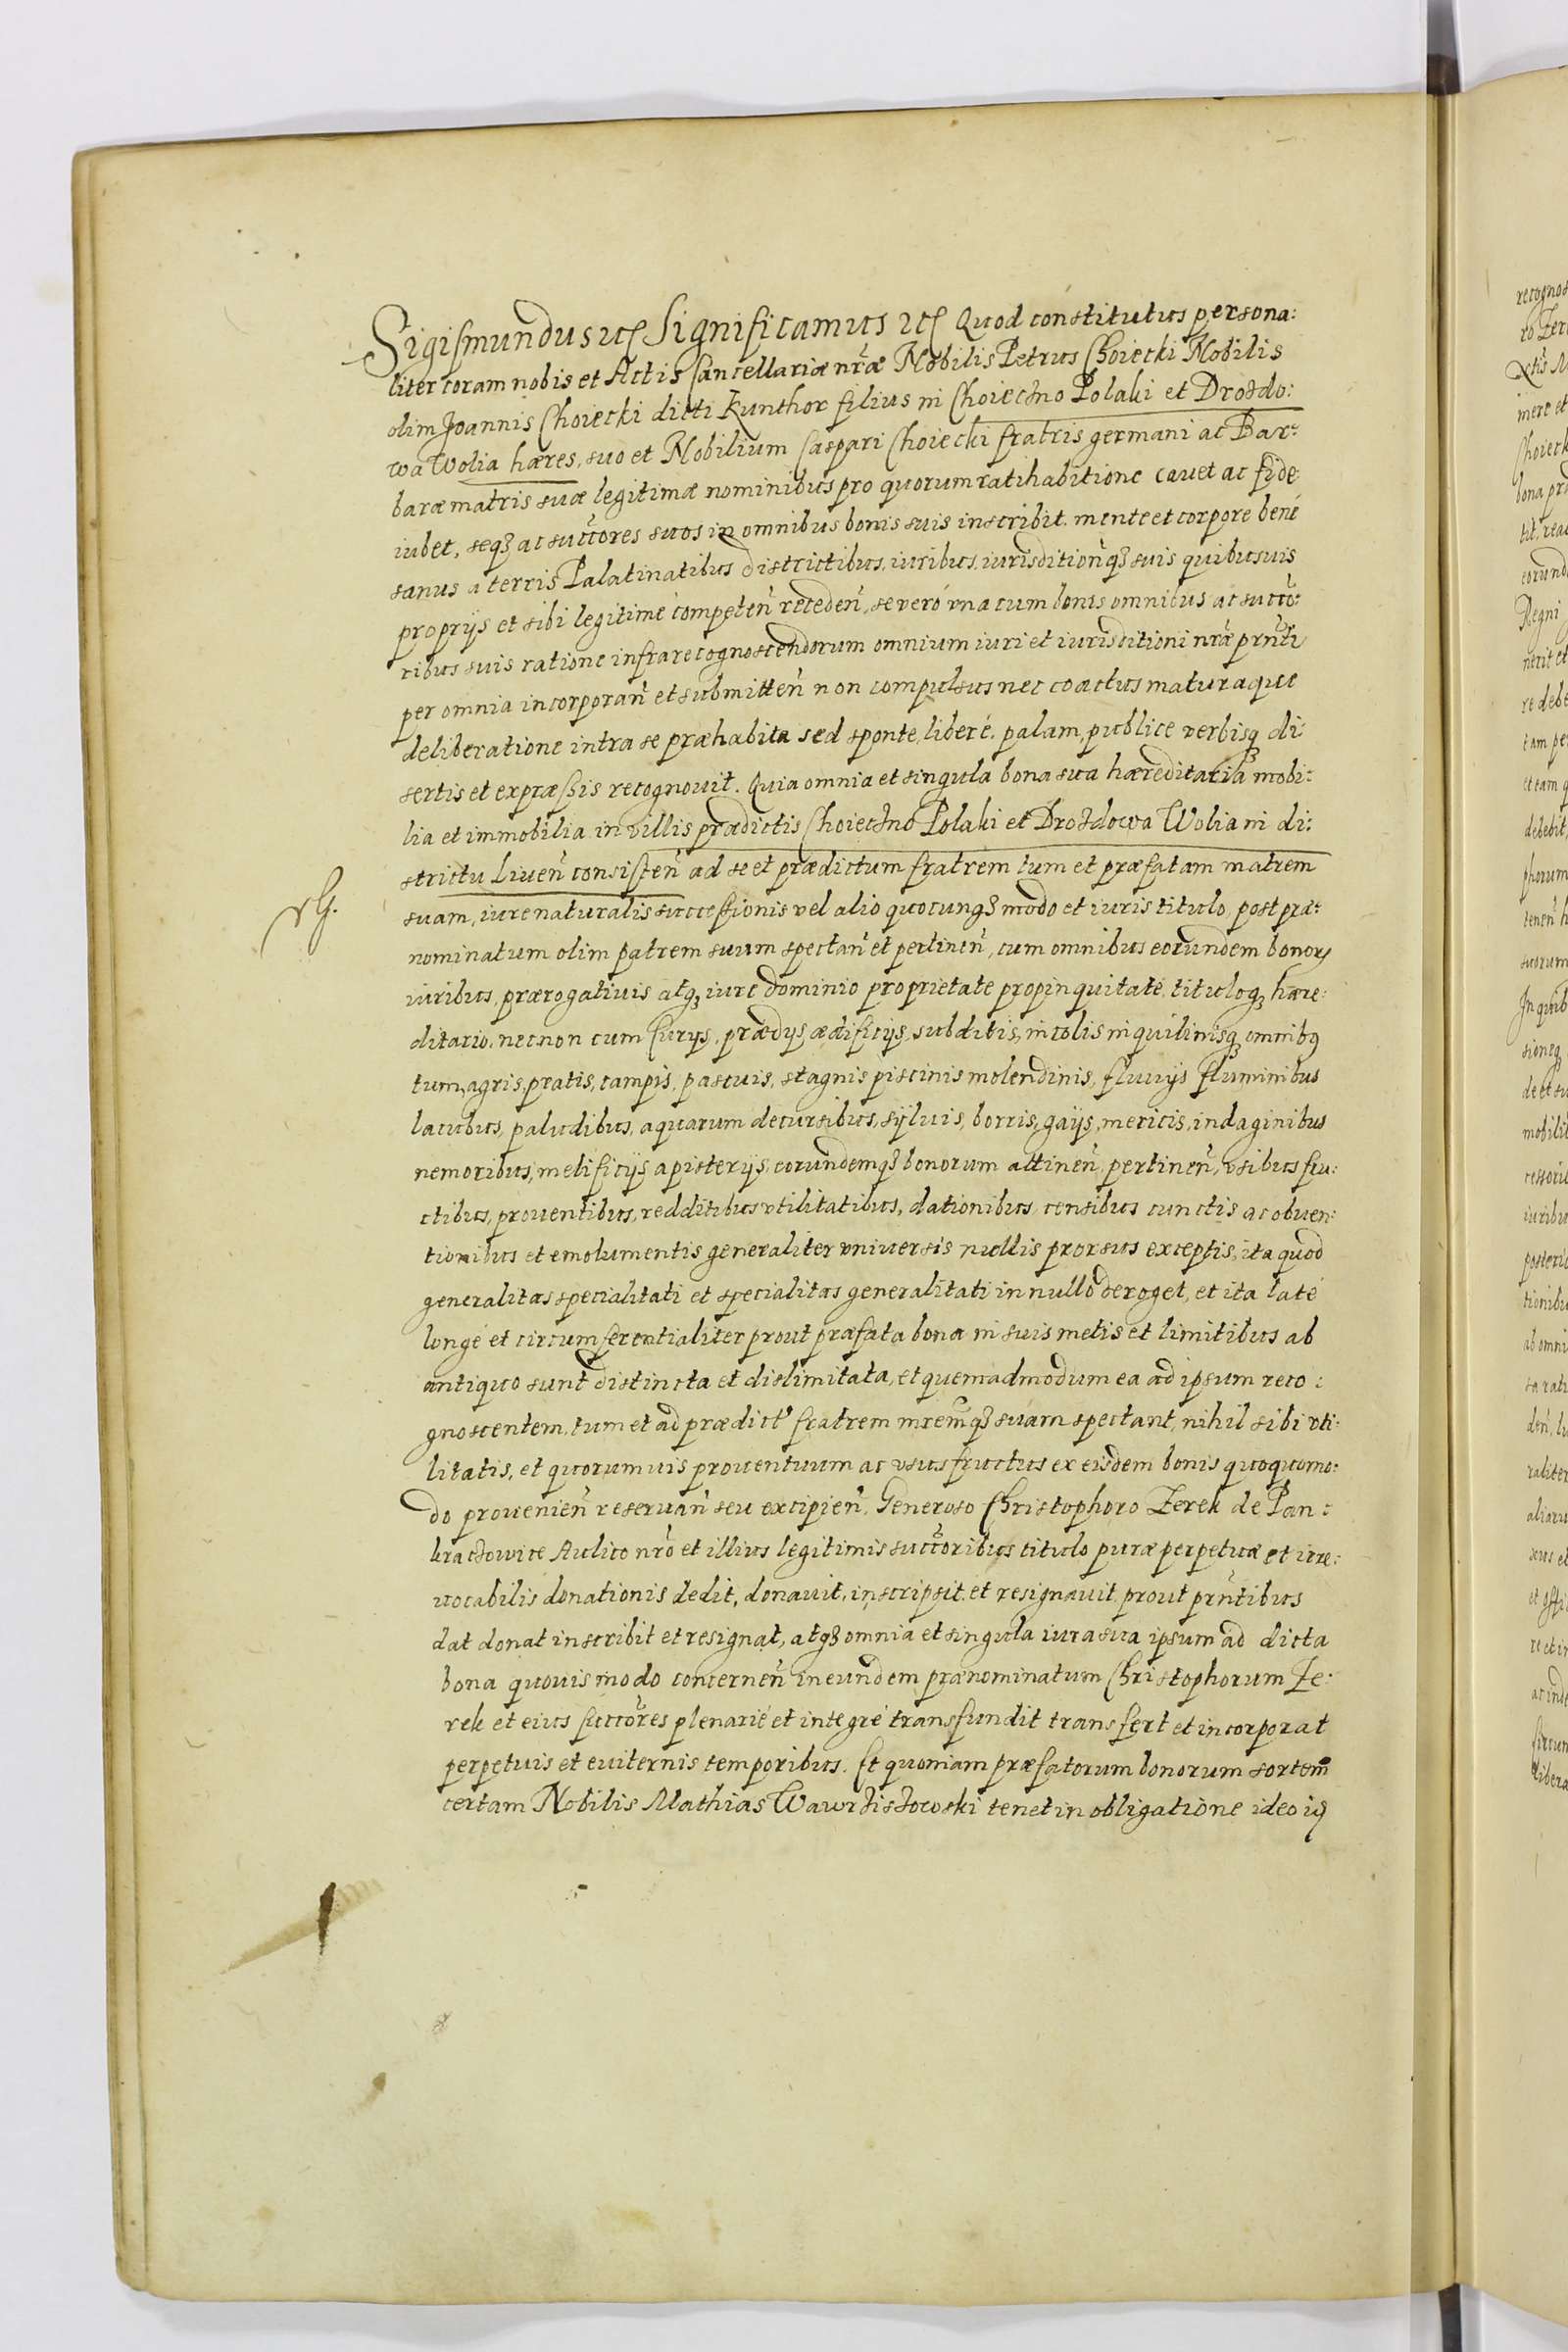 Sigismundus etc Significamus etc Quod constitutus persona:
liter coram nobis et Actis Cancellariæ nr̃æ Nobilis Petrus Choiecki Nobilis
olim Joannis Choiecki dicti Kunthor filius in Choieczno Polaki et Drozdo:
wa Wolia hæres, suo et Nobilium Caspari Choiecki fratris germani ac Bar:
baræ matris suæ legitimæ nominibus pro quorum ratihabitione cauet ac fide
iubet, seqꝫ ac succ̃ores suos in omnibus bonis suis inscribit. mente et corpore bené
sanus a terris Palatinatibus districtibus, iuribus, iurisdition̄qꝫ suis quibusuis
proprijs et sibi legitime competen̄ receden̄, se veró vna cum bonis omnibus ac succo:
ribus suis ratione infrarecognoscendorum omnium iuri et iurisditioni nr̃æ prñti
per omnia incorporan̄ et submitten̄ non compulsus nec coactus maturaque
deliberatione intra se præhabita sed sponte, liberé, palam, publice verbisqꝫ di:
sertis et expræssis recognouit. Quia omnia et singula bona sua hæreditaria mobi:
lia et immobilia in villis prædictis Choieczno Polaki et Drozdowa Wolia in di:
strictu Liuen̄ consisten̄ ad se et prædictum fratrem tum et præfatam matrem
suam, iure naturalis successionis vel alio quocunqꝫ modo et iuris titulo post præ:
nominatum olim patrem suum spectan̄ et pertinen̄, cum omnibus eorundem bonorꝝ
iuribus, prærogatiuis atqꝫ iure dominio proprietate propinquitate, tituloqꝫ hære:
ditario, necnon cum Curijs, prædijs ædificijs, subditis, incolis inquilinisqꝫ omnibꝰ
tum, agris, pratis, campis, pascuis, stagnis piscinis molendinis, fluuijs fluminibus
lacubus, paludibus, aquarum decursibus, syluis, borris, gaijs, mericis, indaginibus
nemoribus, melificijs, apisterijs, eorundemqꝫ bonorum attinen̄, pertinen̄, vsibus fru:
ctibus, prouentibus, redditibus vtilitatibus, dationibus, censibus cunctis ac obuen:
tionibus et emolumentis generaliter vniuersis nullis prorsus exceptis, ita quod
generalitas specialitati et specialitas generalitati in nullo deroget, et ita laté
longé et circumferentialiter prout præfata bona in suis metis et limitibus ab
antiquo sunt distincta et dislimitata, et quemadmodum ea ad ipsum reco:
gnoscentem, tum et ad prædict̃ fratrem mr̃emqꝫ suam spectant, nihil sibi vti:
litatis, et quorumuis prouentuum ac vsusfructus ex eisdem bonis quoquomo:
do prouenien̄ reseruan̄ seu excipien̄. Generoso Christophoro Zerek de Pan:
kraczowice Aulico nr̃o et illius legitimis succ̃oribus titulo puræ perpetuæ et irre:
uocabilis donationis dedit, donauit, inscripsit et resignauit prout prñtibus
dat donat inscribit et resignat, atqꝫ omnia et singula iura sua ipsum ad dicta
bona quouismodo concernen̄ in eundem prænominatum Christophorum Ze:
rek et eius succ̃ores plenarié et integré transfundit transfert et incorporat
perpetuis et euiternis temporibus. Et quoniam præfatorum bonorum sortem
certam Nobilis Mathias Wawrziszowski tenet in obligatione ideo